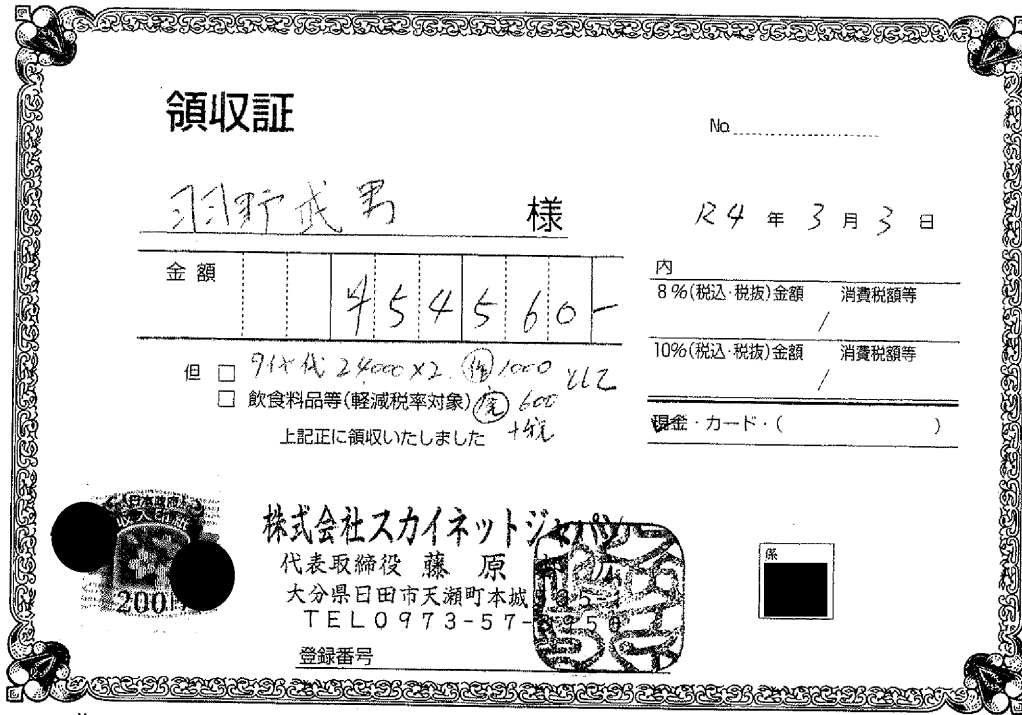 領収証
No.
羽野武男 様
R4 年 3 月 3 日
金額 454560-
内
8%(税込・税抜)金額 / 消費税額等
10%(税込・税抜)金額 / 消費税額等
但 □ 代 24000×2. 1000 として
□ 飲食料品等(軽減税率対象) 600
+税
上記正に領収いたしました
現金・カード・( )
日本政府
200円
株式会社スカイネットジャパン
代表取締役 藤原
大分県日田市天瀬町本城
TEL0973-57-
係
登録番号